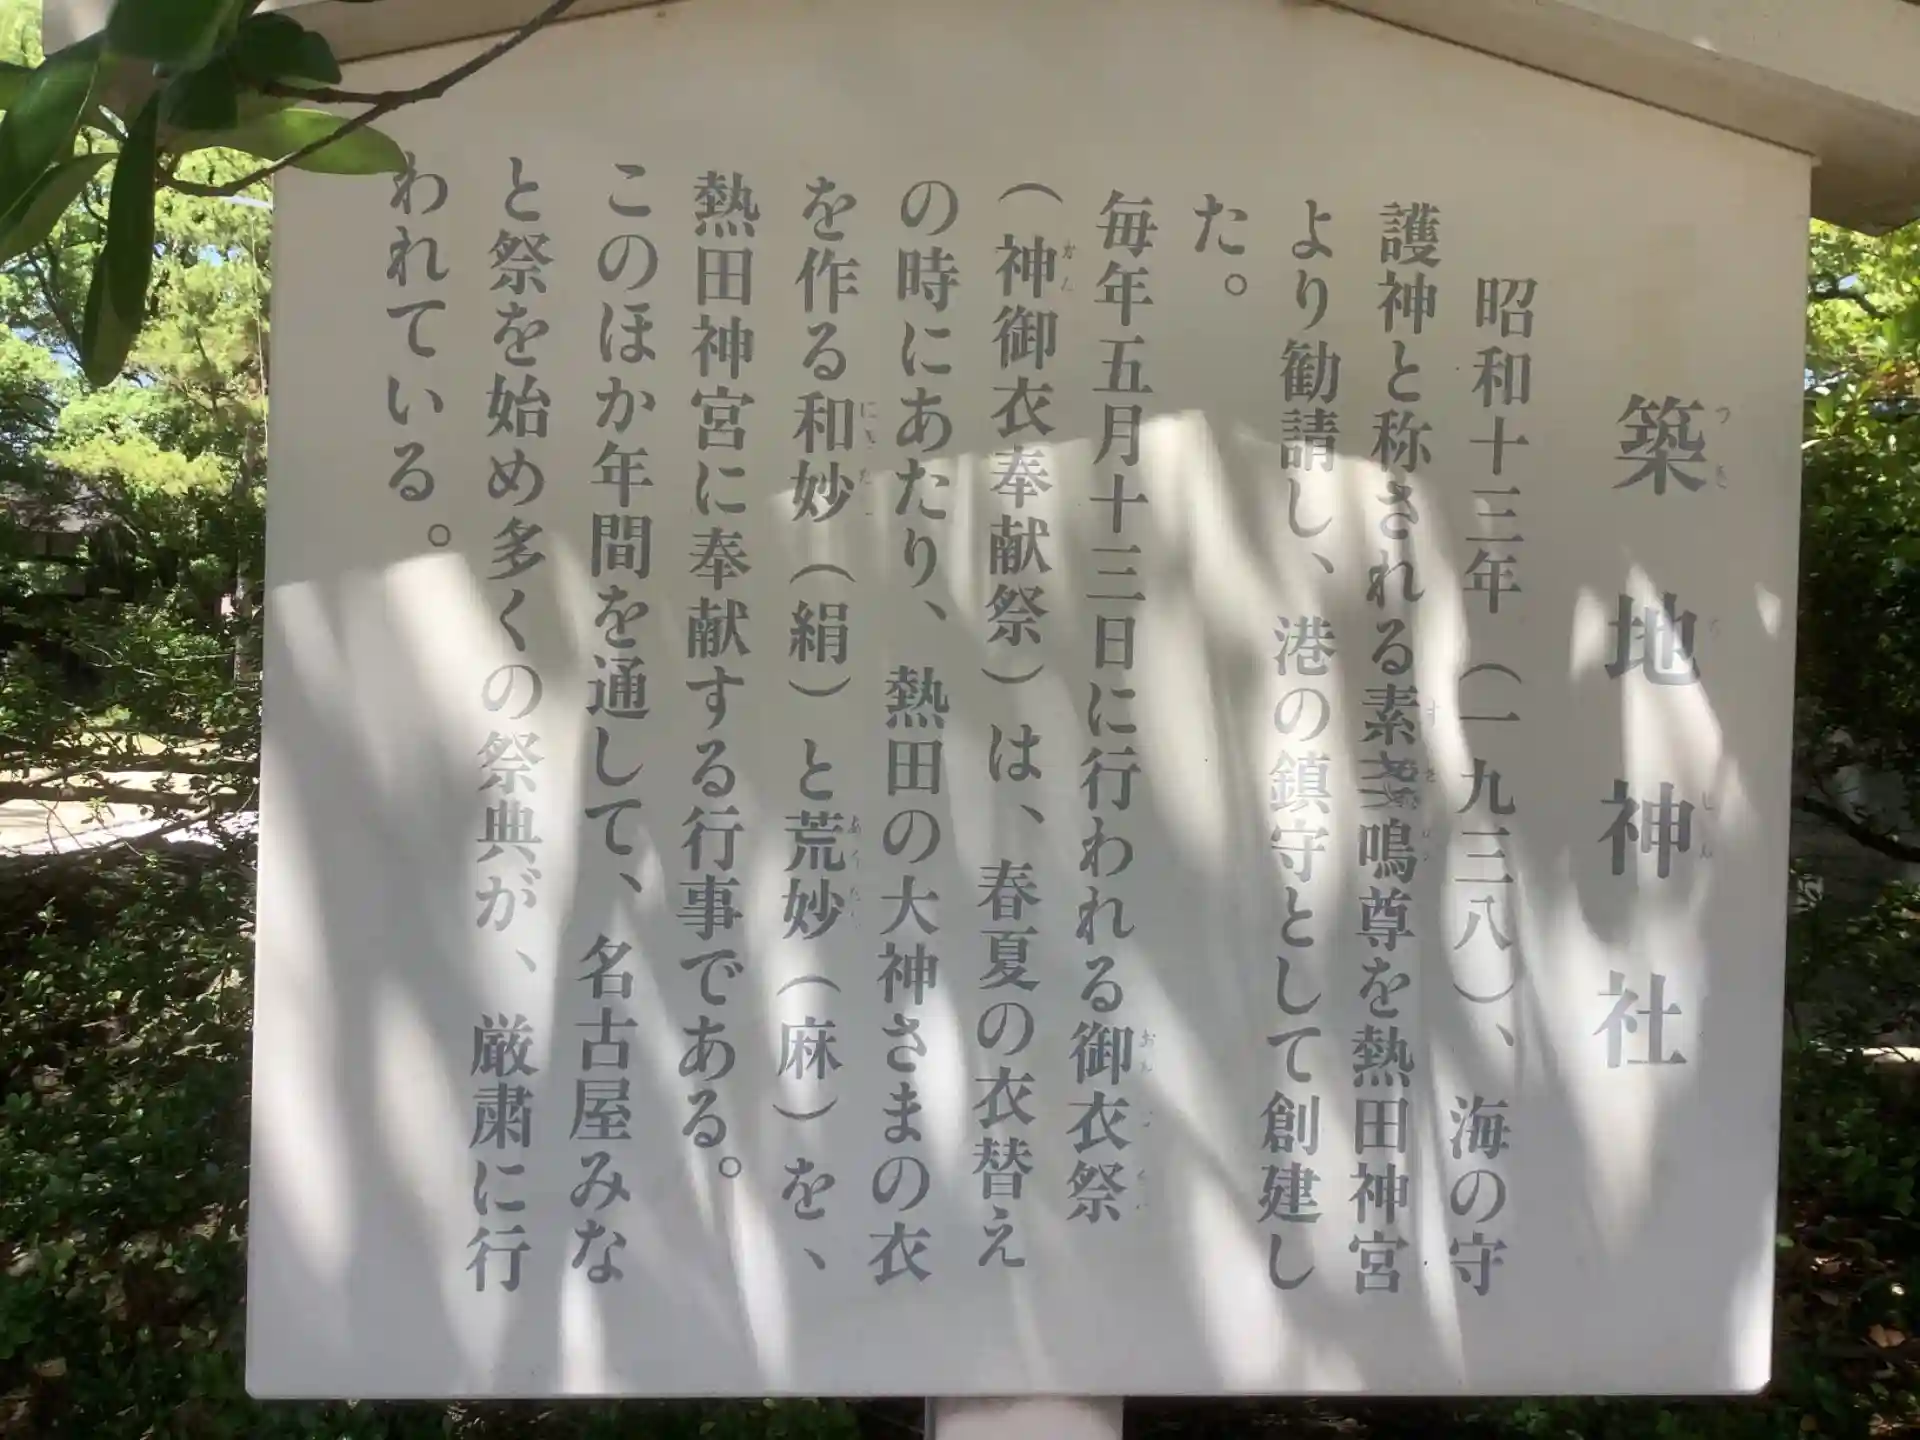 築地神社
昭和十三年（一九三八）、海の守
護神と称される素盞鳴尊を熱田神宮
より勧請し、港の鎮守として創建し
た。
毎年五月十三日に行われる御衣祭
（神御衣奉献祭）は、春夏の衣替え
の時にあたり、熱田の大神さまの衣
を作る和妙（絹）と荒妙（麻）を、
熱田神宮に奉献する行事である。
このほか年間を通して、名古屋みな
と祭を始め多くの祭典が、厳粛に行
われている。